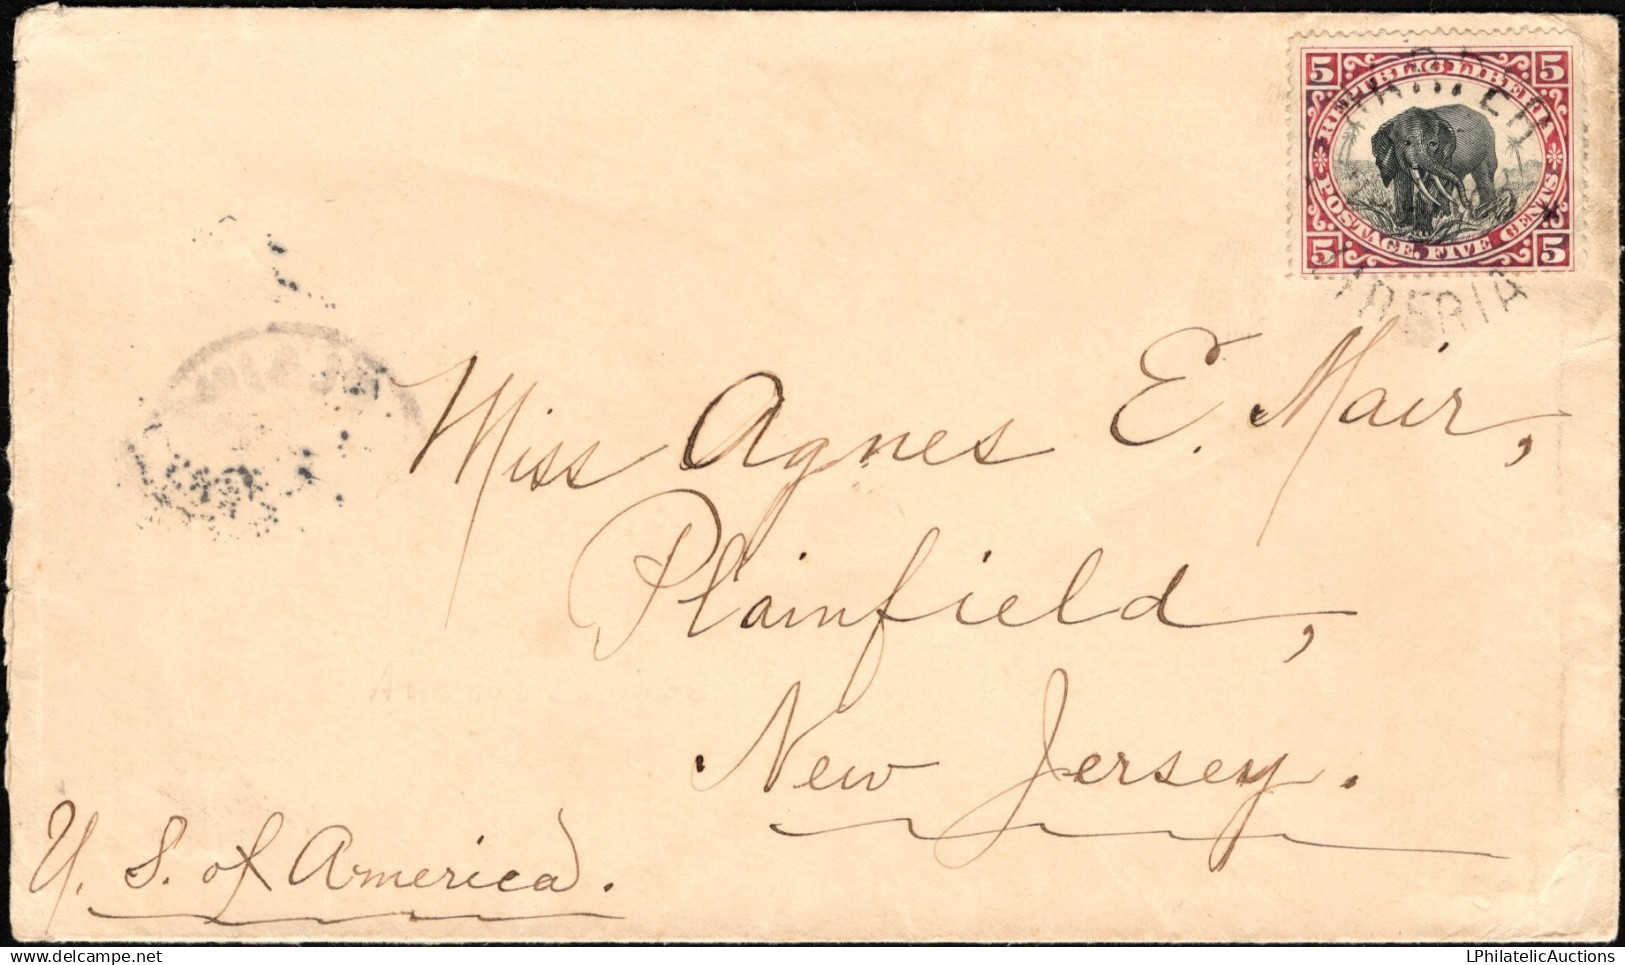 5 REPUBLIC LIBERIA 5
5 POSTAGE. FIVE CENTS 5
HARPER
LIBERIA
Miss Agnes E. Mair,
Plainfield,
New Jersey.
U. S. of America.
LPhilatelicAuctions